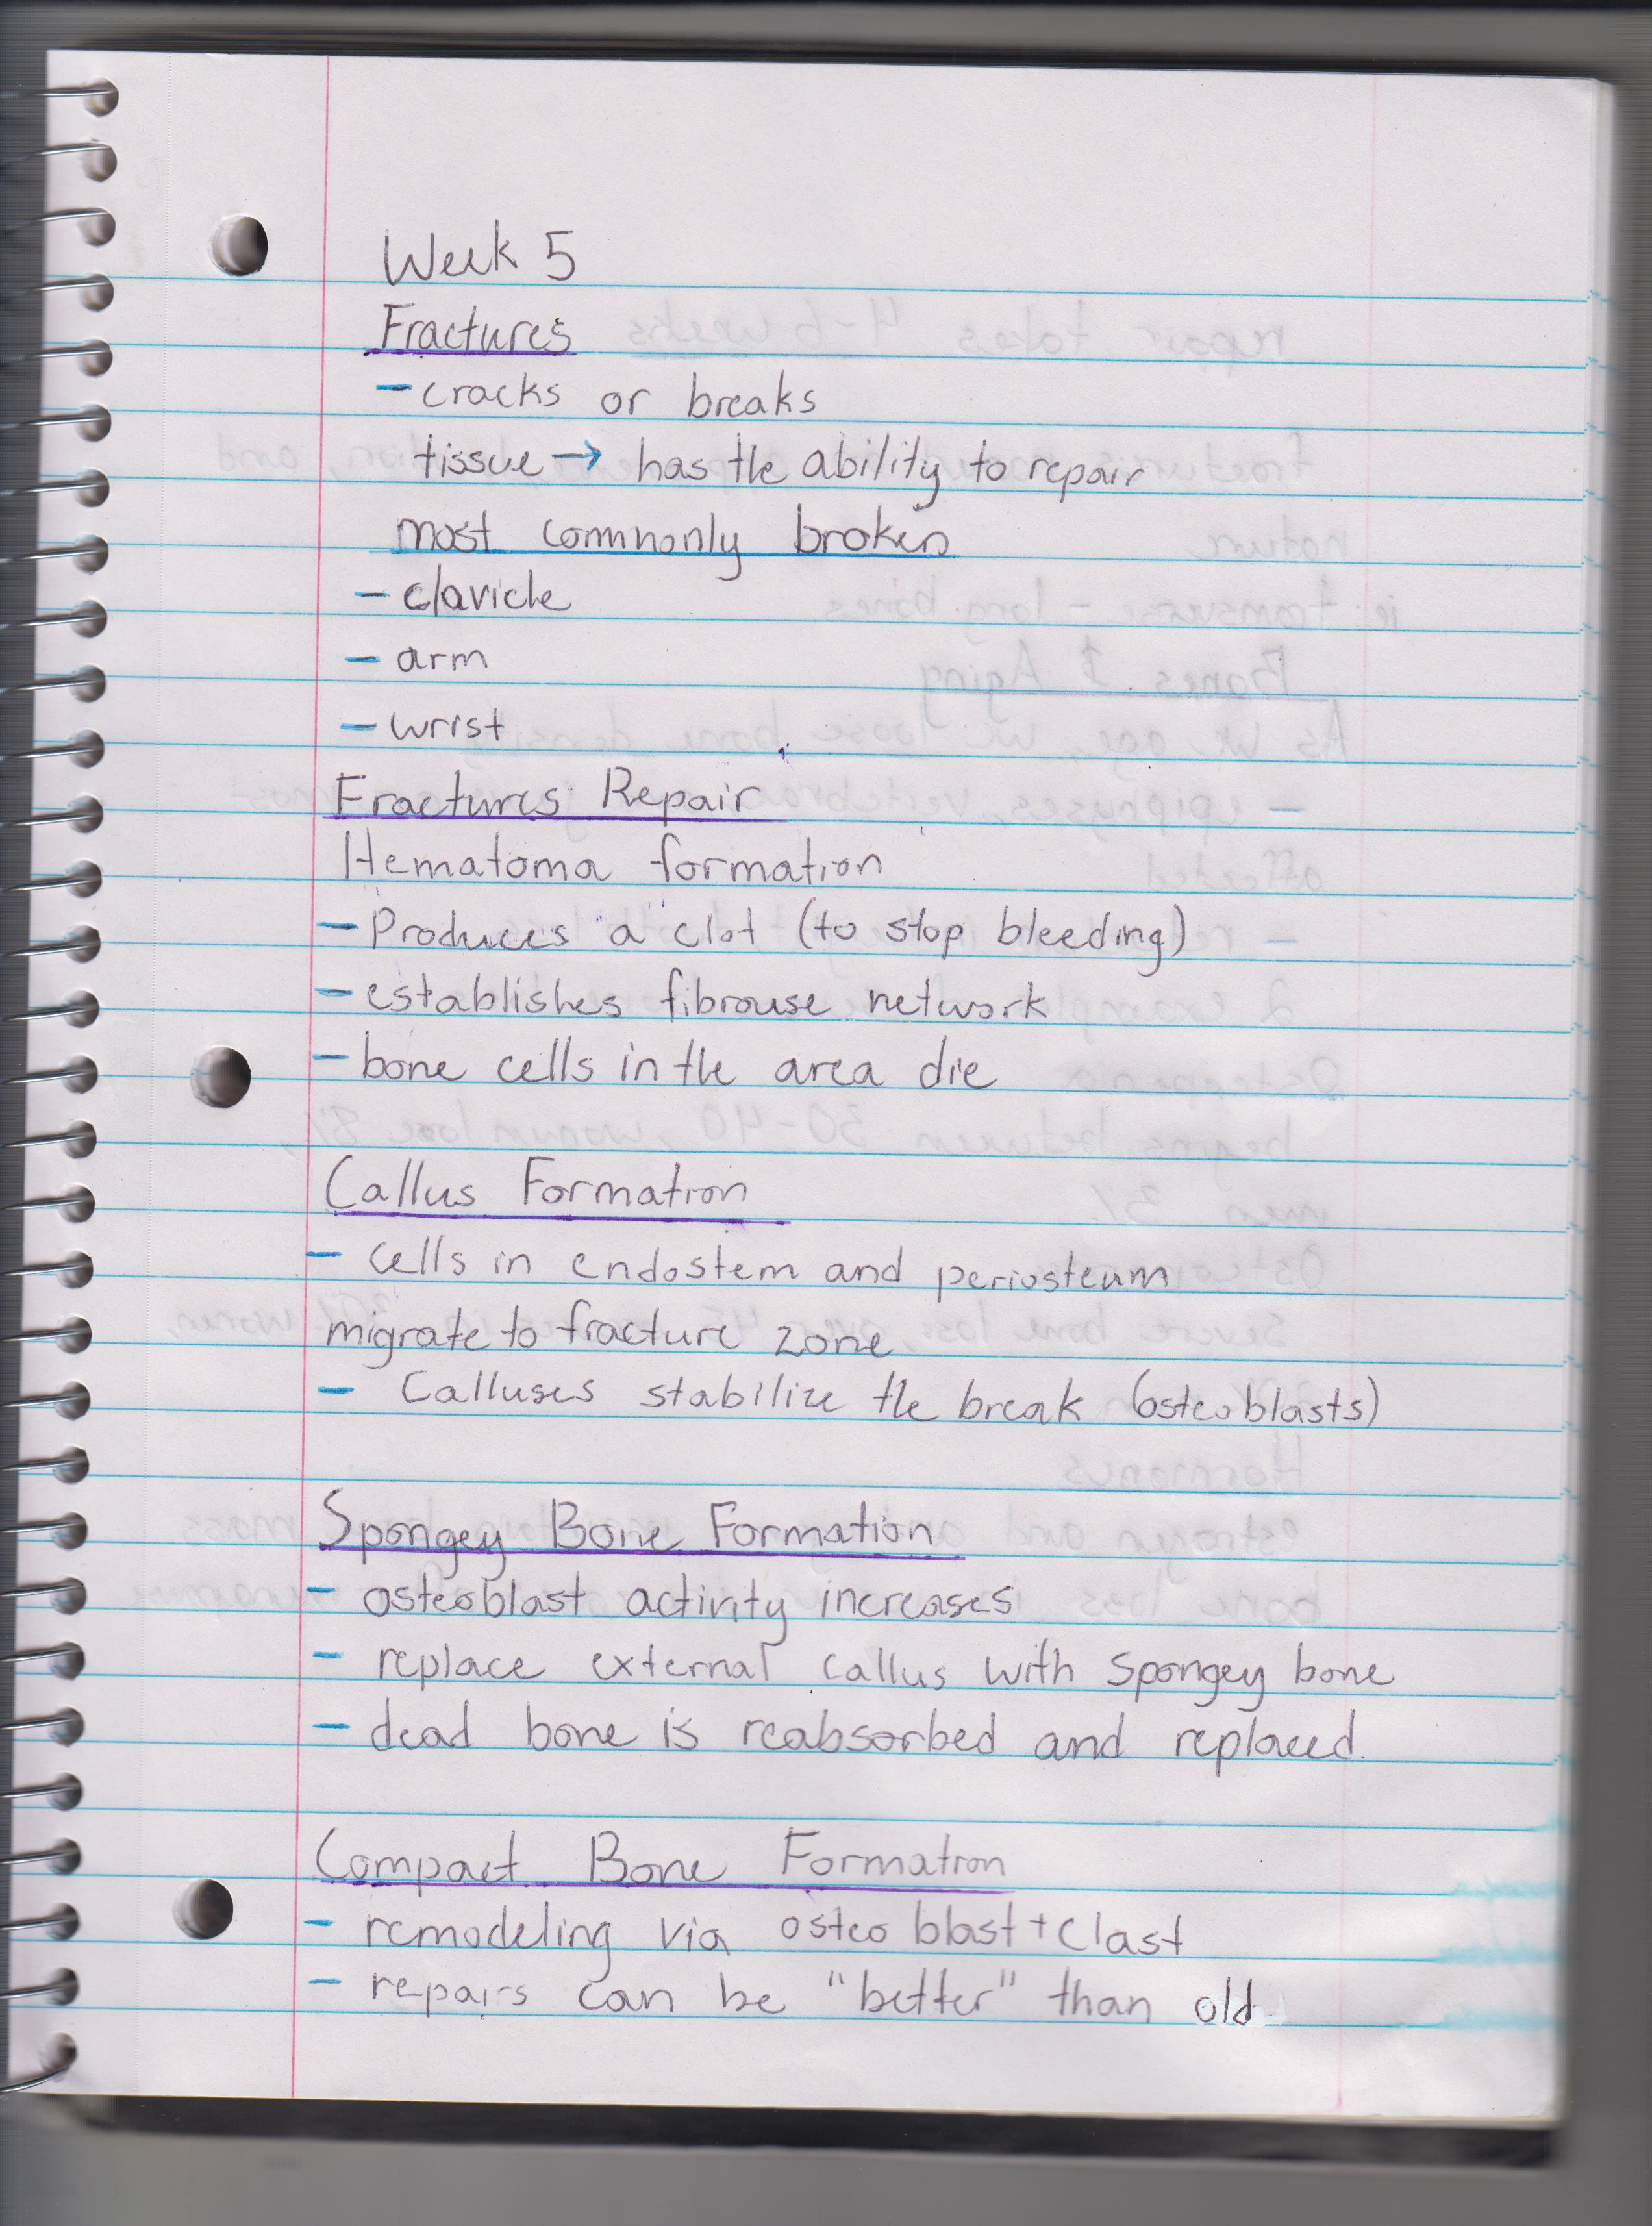 Week 5
Fractures
- cracks or breaks
tissue → has the ability to repair
most commonly broken
- clavicle
- arm
- wrist
Fractures Repair
Hematoma formation
- Produces "a" clot (to stop bleeding)
- establishes fibrouse network
- bone cells in the area die
Callus Formation
- cells in endostem and periosteum
migrate to fracture zone
- Calluses stabilize the break (osteoblasts)
Spongey Bone Formation
- osteoblast activity increases
- replace external callus with spongey bone
- dead bone is reabsorbed and replaced.
Compact Bone Formation
- remodeling via osteo blast + clast
- repairs can be "better" than old